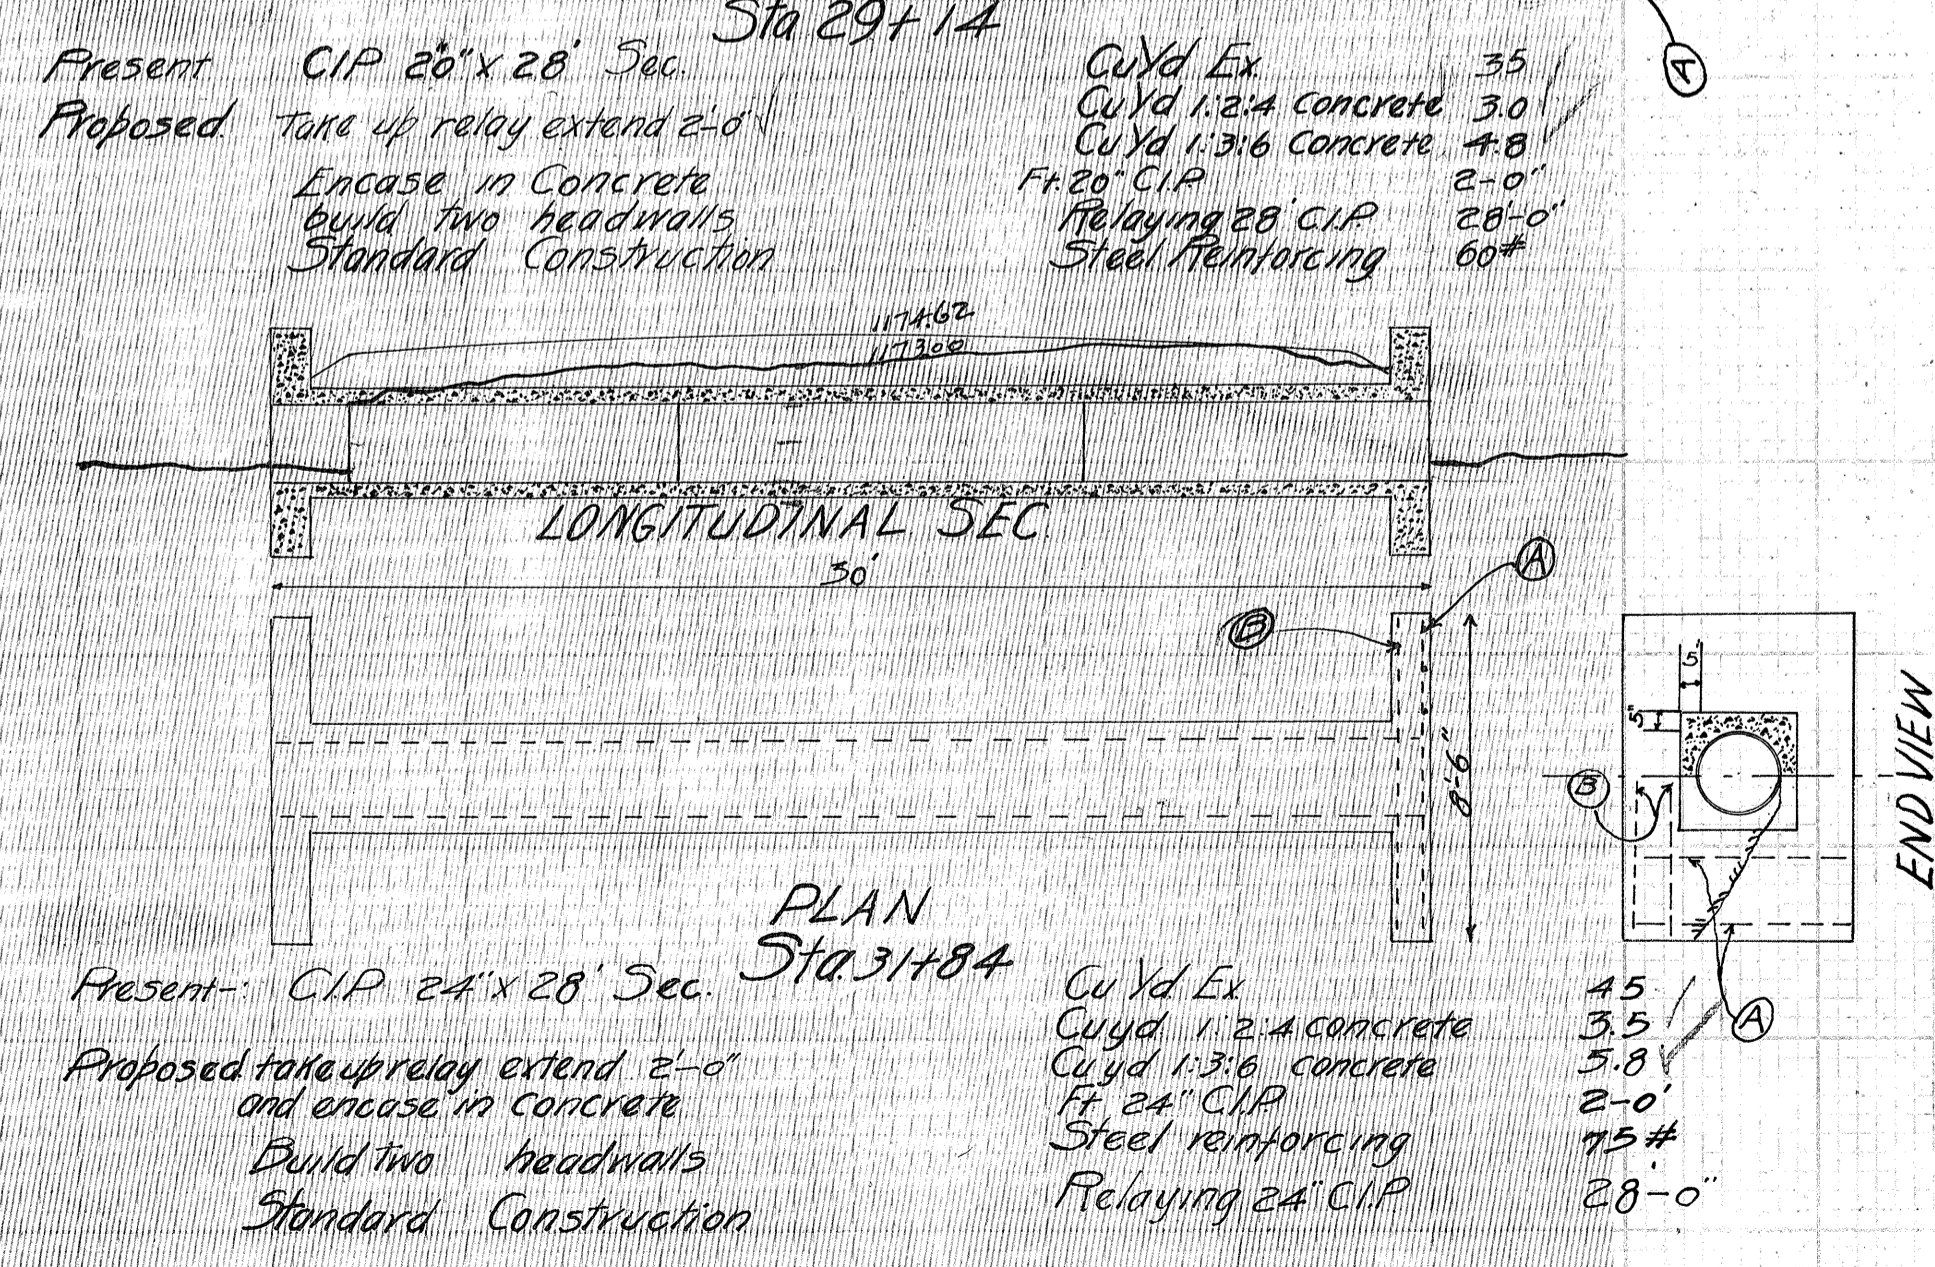 Sta 29+14
Present CIP 20" x 28' Sec.
Proposed. Take up relay extend 2'-0"
Encase in Concrete
build two headwalls
Standard Construction
Cu Yd Ex. 35
Cu Yd 1:2:4 Concrete 3.0
Cu Yd 1:3:6 Concrete 4.8
Ft. 20" C.I.P. 2-0"
Relaying 28' C.I.P. 28'-0"
Steel Reinforcing 60#
A
1174.62
1173.00
LONGITUDINAL SEC.
30'
A
B
8'-6"
5'
5"
B
A
END VIEW
PLAN
Sta. 31+84
Present-: C.I.P 24" x 28' Sec.
Proposed take up relay extend 2'-0"
and encase in concrete
Build two headwalls
Standard Construction
Cu Yd Ex. 45
Cu yd 1:2:4 concrete 3.5
Cu yd 1:3:6 concrete 5.8
Ft. 24" C.I.P. 2-0'
Steel reinforcing 75#
Relaying 24" C.I.P 28'-0"